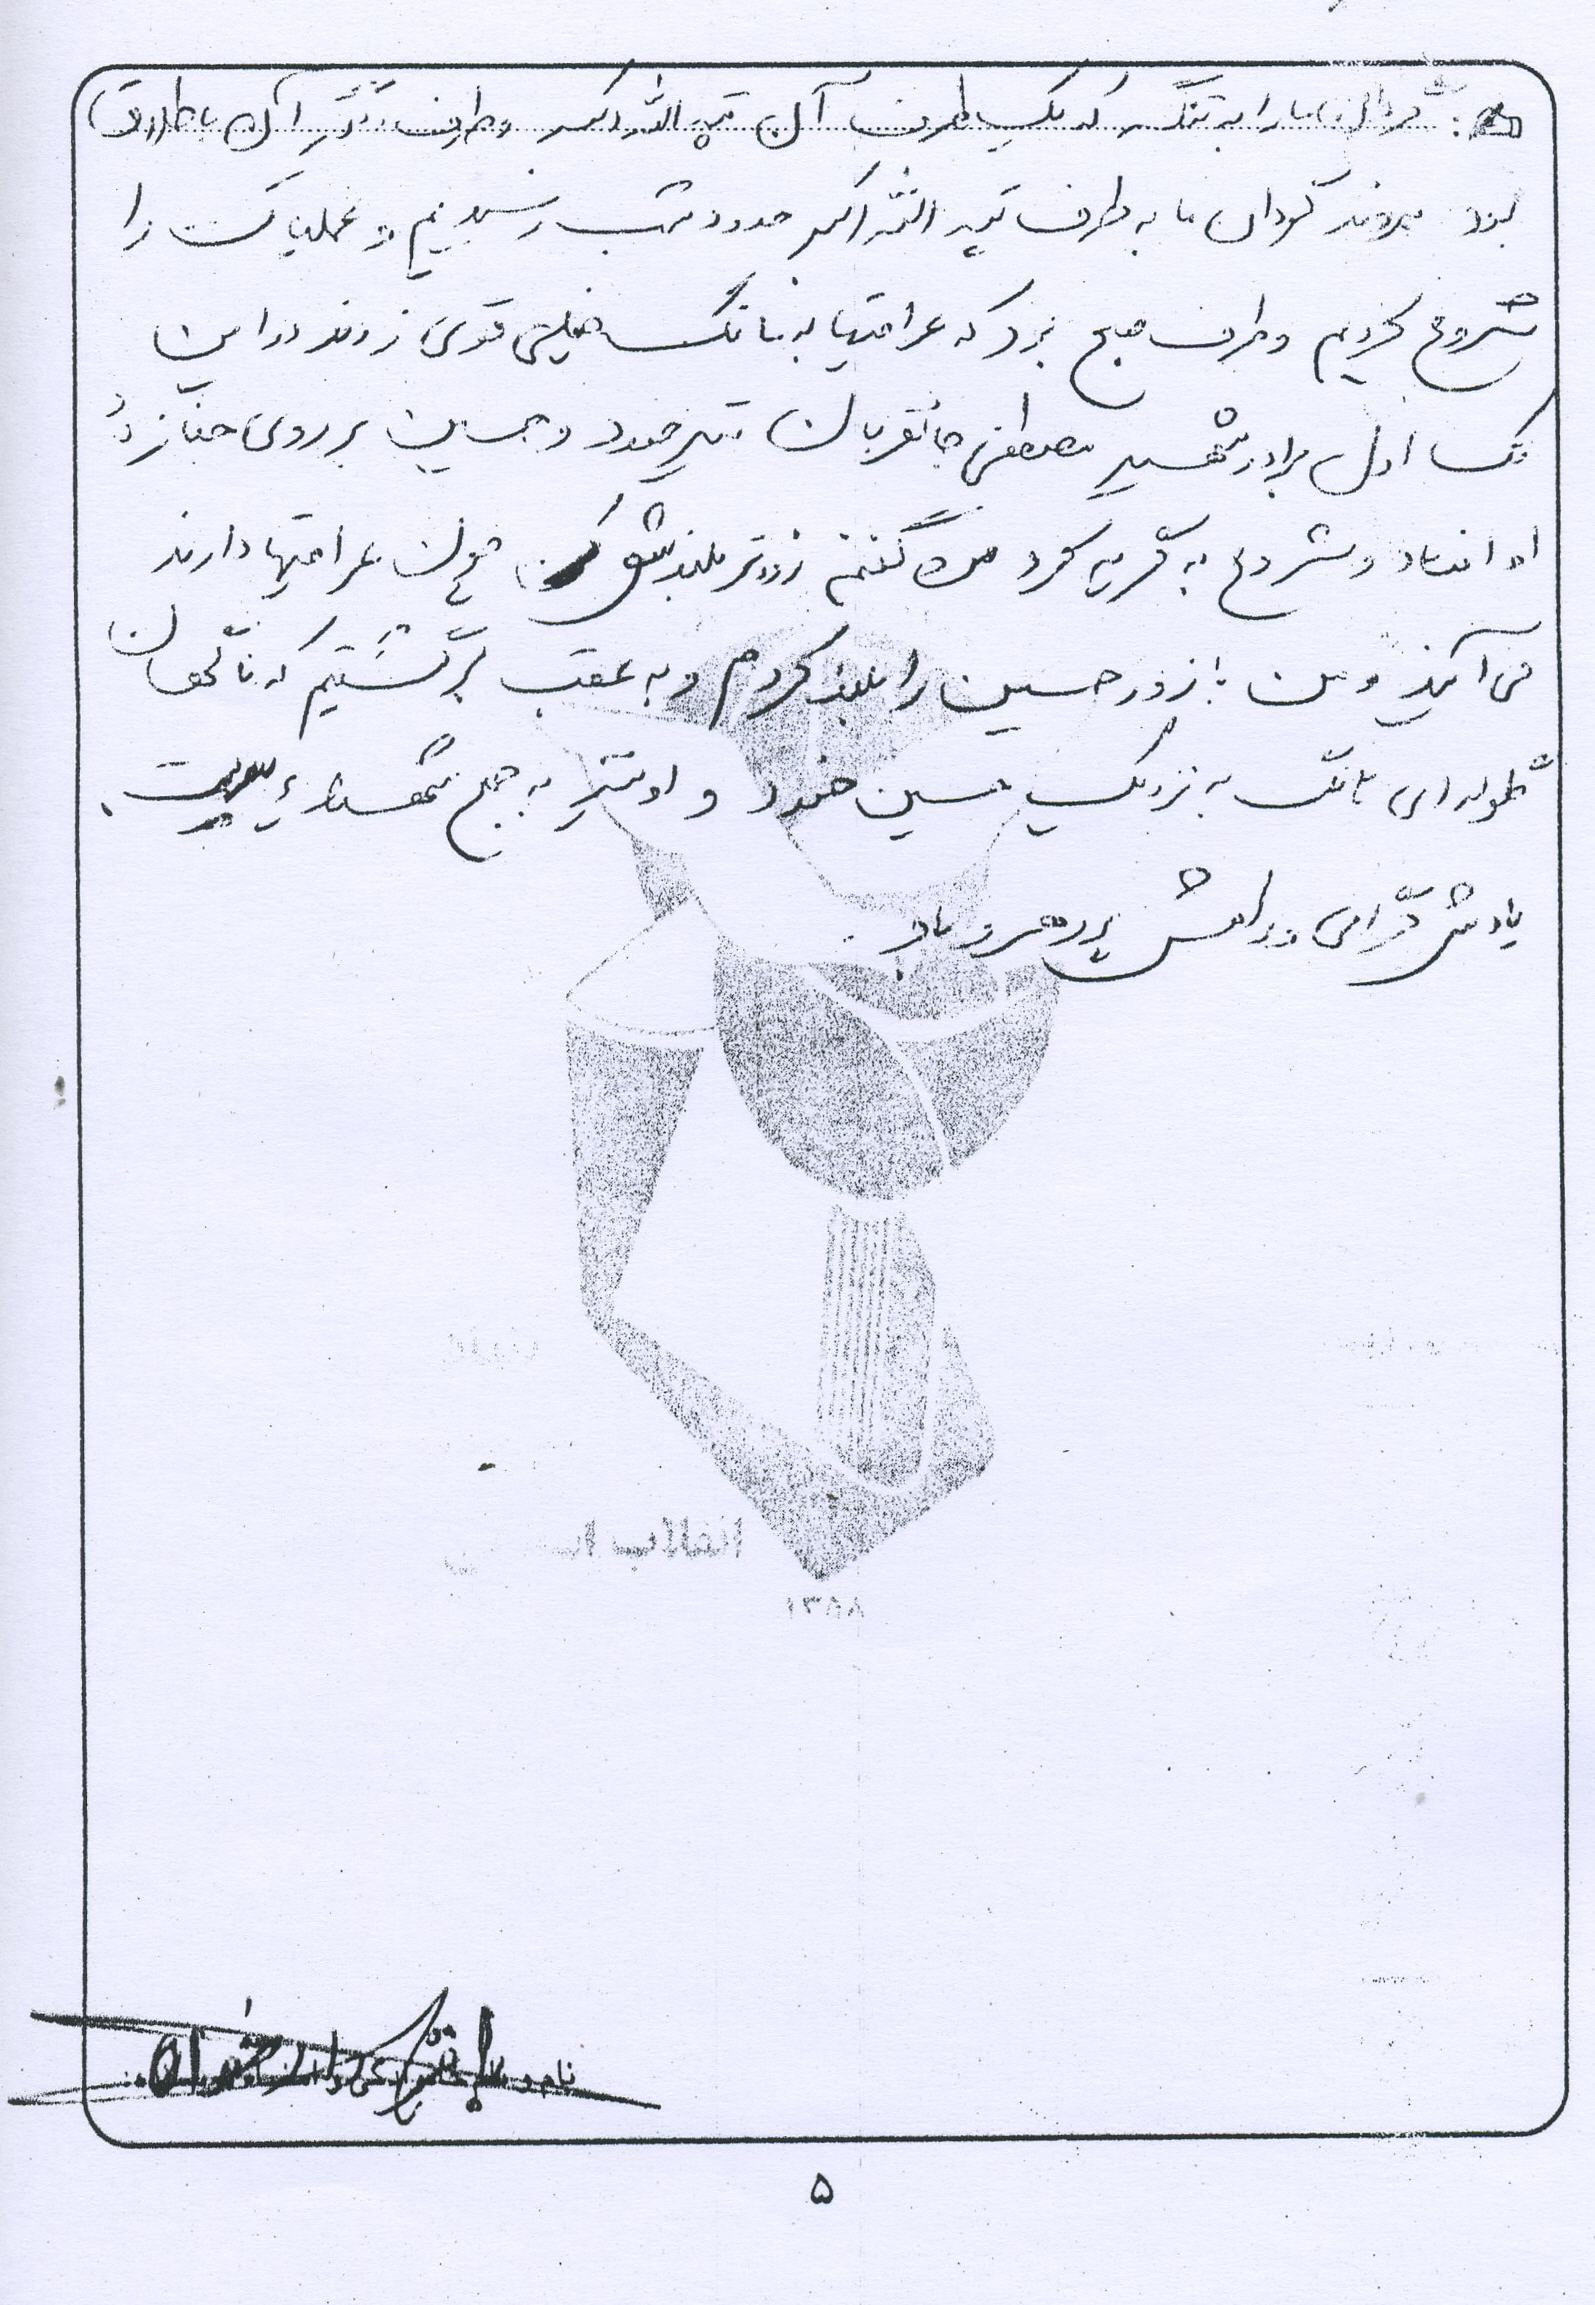 گردان ما را به تنگه که یک طرف آن تپه الله اکبر و طرف دیگر آن باطلاق
بود بردند گردان ما به طرف تپه الله اکبر حدود شب رسیدیم و عملیات را
شروع کردیم و طرف صبح بود که عراقیها پاتک خیلی قوی زدند در این
تک اول برادر شهید مصطفی جانقربان تیر خورد و حسین بر روی جنازه
او افتاد و شروع به گریه کرد من گفتم زودتر بلند شو چون عراقیها دارند
می آیند و من با زور حسین را بلند کردم و به عقب برگشتیم که ناگهان
گلوله ای تانک به نزدیک حسین خورد و او نیز به جمع شهداء پیوست.
یادش گرامی و راهش پر رهرو باد
انقلاب
۱۳۵۸
نام و
۵